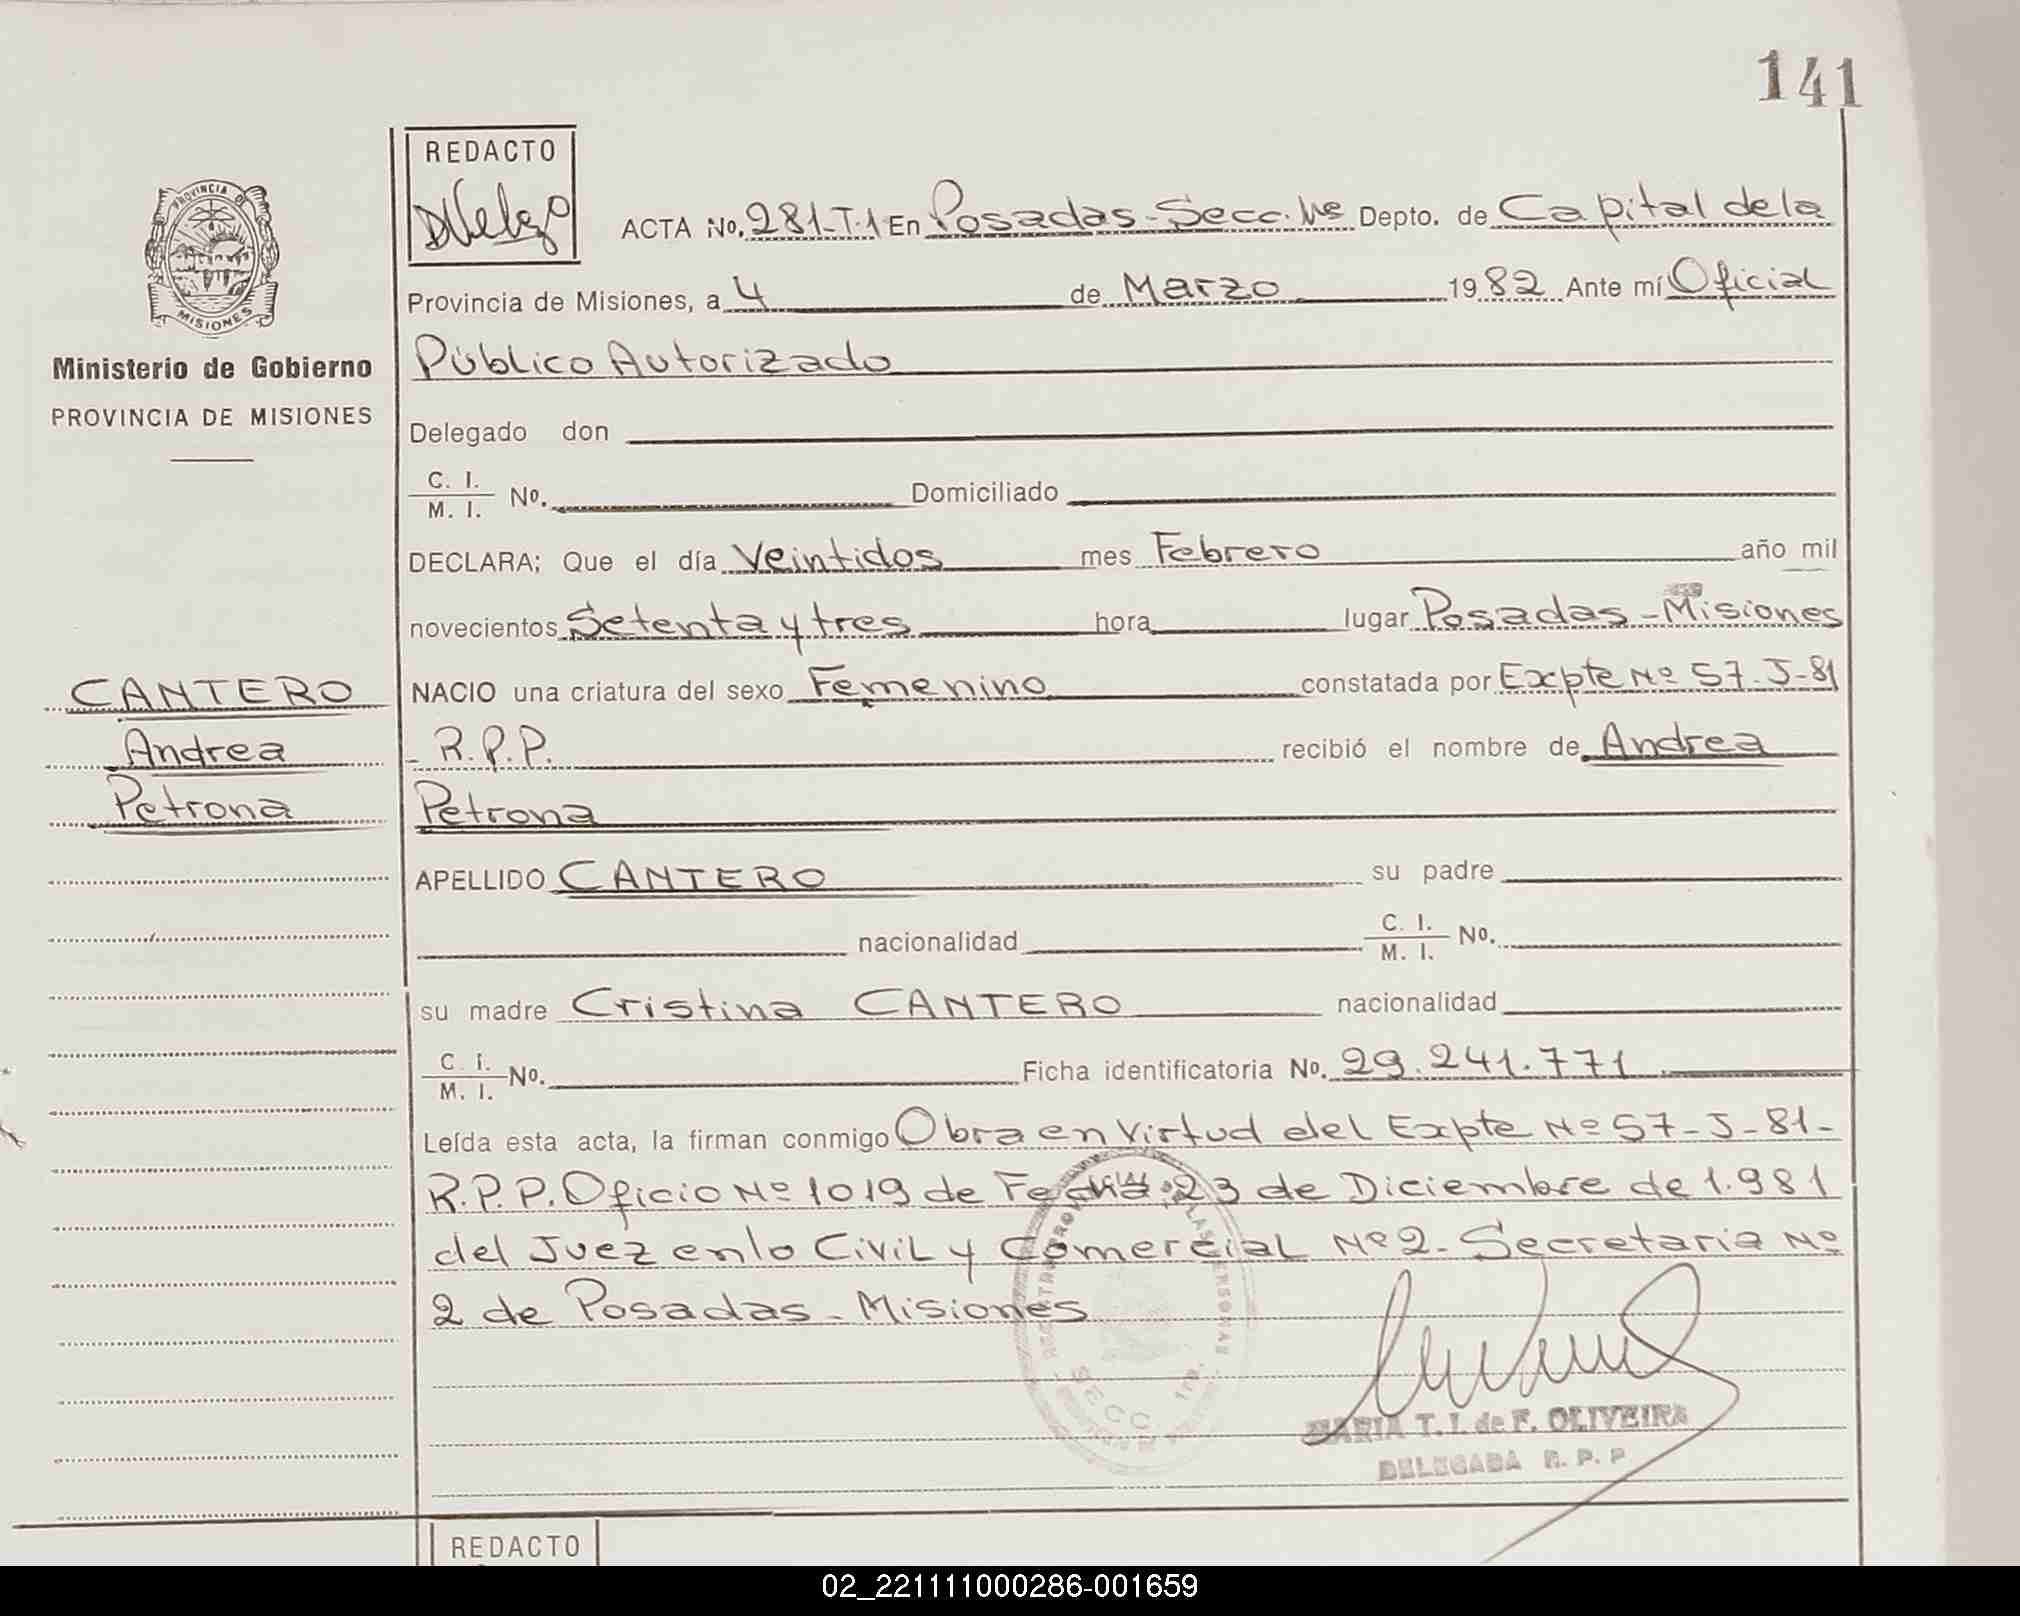 141
PROVINCIA DE
MISIONES
Ministerio de Gobierno
PROVINCIA DE MISIONES
CANTERO
Andrea
Petrona
REDACTO
ACTA No. 281-T.1 En Posadas-Secc. Depto. de Capital de la
Provincia de Misiones, a 4 de Marzo 1982 Ante mí Oficial
Público Autorizado
Delegado don
C. I.
M. I. No. Domiciliado
DECLARA; Que el día Veintidos mes Febrero año mil
novecientos Setenta y tres hora lugar Posadas-Misiones
NACIO una criatura del sexo Femenino constatada por Expte Nº 57-J-81
- R.P.P. recibió el nombre de Andrea
Petrona
APELLIDO CANTERO su padre
nacionalidad C. I.
M. I. No.
su madre Cristina CANTERO nacionalidad
C. I.
M. I. No. Ficha identificatoria No. 29.241.771
Leída esta acta, la firman conmigo Obra en Virtud del Expte Nº 57-J-81-
R.P.P. Oficio Nº 1019 de Fecha 23 de Diciembre de 1.981
del Juez en lo Civil y Comercial Nº 2. Secretaria Nº
2 de Posadas-Misiones
SECC 1ra.
MARIA T. I. de F. OLIVEIRA
DELEGADA R. P. P
REDACTO
02_221111000286-001659